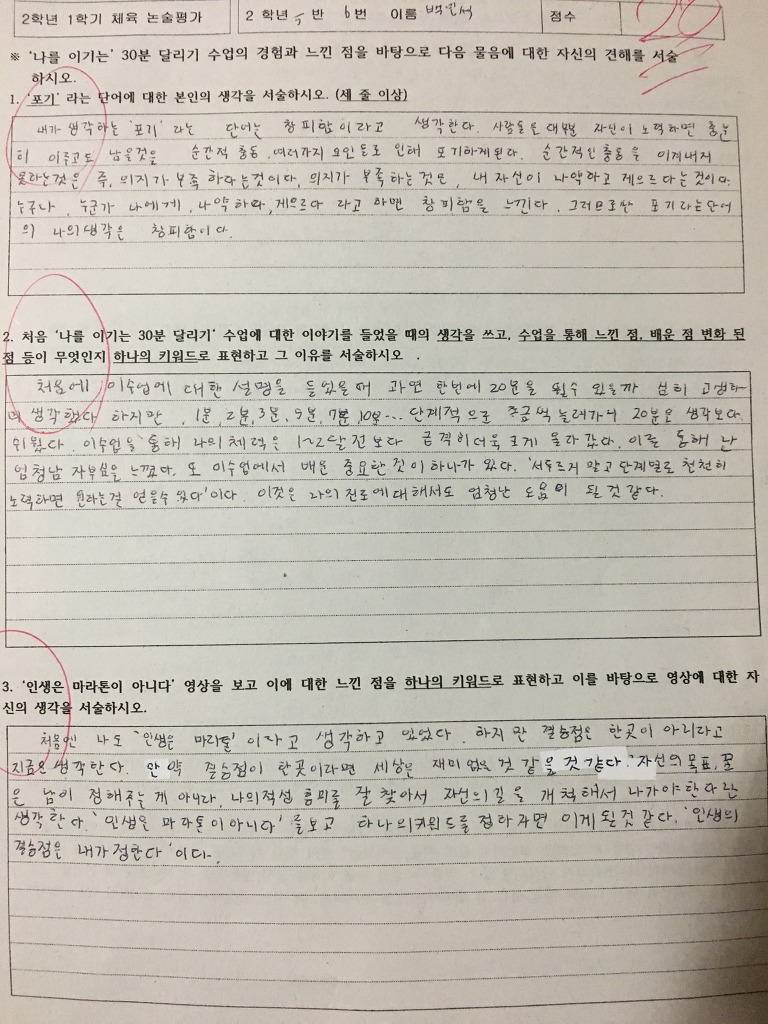 2학년 1학기 체육 논술평가 2 학년 5 반 6 번 이름 점수 20
※ '나를 이기는' 30분 달리기 수업의 경험과 느낀 점을 바탕으로 다음 물음에 대한 자신의 견해를 서술
하시오.
1. '포기' 라는 단어에 대한 본인의 생각을 서술하시오. (세 줄 이상)
내가 생각하는 '포기' 라는 단어는 창피함이라고 생각한다. 사람들은 대부분 자신이 노력하면 충분
히 이루고도 남을것을 순간적 충동, 여러가지 요인들로 인해 포기하게된다. 순간적인 충동을 이겨내지
못하는것은 즉, 의지가 부족 하다는것이다, 의지가 부족하는것은, 내 자신이 나약하고 게으르다는 것이다.
누구나, 누군가 나에게, 나약하다, 게으르다 라고 하면 창피함을 느낀다. 그러므로 포기라는단어
의 나의생각은 창피함이다.
2. 처음 '나를 이기는 30분 달리기' 수업에 대한 이야기를 들었을 때의 생각을 쓰고, 수업을 통해 느낀 점, 배운 점 변화 된
점 등이 무엇인지 하나의 키워드로 표현하고 그 이유를 서술하시오 .
처음에 이수업에 대한 설명을 들었을때 과연 한번에 20분을 뛸수 있을까 심히 고생하
며 생각했다 하지만, 1분, 2분, 3분, 5분, 7분, 10분... 단계적으로 조금씩 늘려가니 20분은 생각보다
쉬웠다. 이수업을 통해 나의 체력은 1~2달 전보다 급격히더욱 크게 올라갔다. 이를 통해 난
엄청남 자부심을 느꼈다. 또 이수업에서 배운 중요한것이 하나가 있다. '서두르지 말고 단계별로 천천히
노력하면 원하는걸 얻을수 있다'이다. 이것은 나의 진로에대해서도 엄청난 도움이 될 것 같다.
3. '인생은 마라톤이 아니다' 영상을 보고 이에 대한 느낀 점을 하나의 키워드로 표현하고 이를 바탕으로 영상에 대한 자
신의 생각을 서술하시오.
처음엔 나도 '인생은 마라톤' 이라고 생각하고 있었다. 하지만 결승점은 한곳이 아니라고
지금은 생각한다. 만약 결승점이 한곳이라면 세상은 재미 없을 것 같을 것 같다. 자신의 목표, 꿈
은 남이 정해주는 게 아니라, 나의적성 흥미를 잘 찾아서 자신의 길을 개척해서 나가야 한다란
생각한다. '인생은 마라톤이아니다' 를보고 하나의키워드를 접하자면 이게 될것 같다. '인생의
결승점은 내가 정한다' 이다.